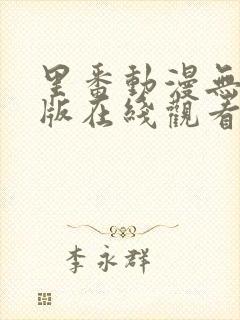 里番動漫無
版在綫觀看
李永群